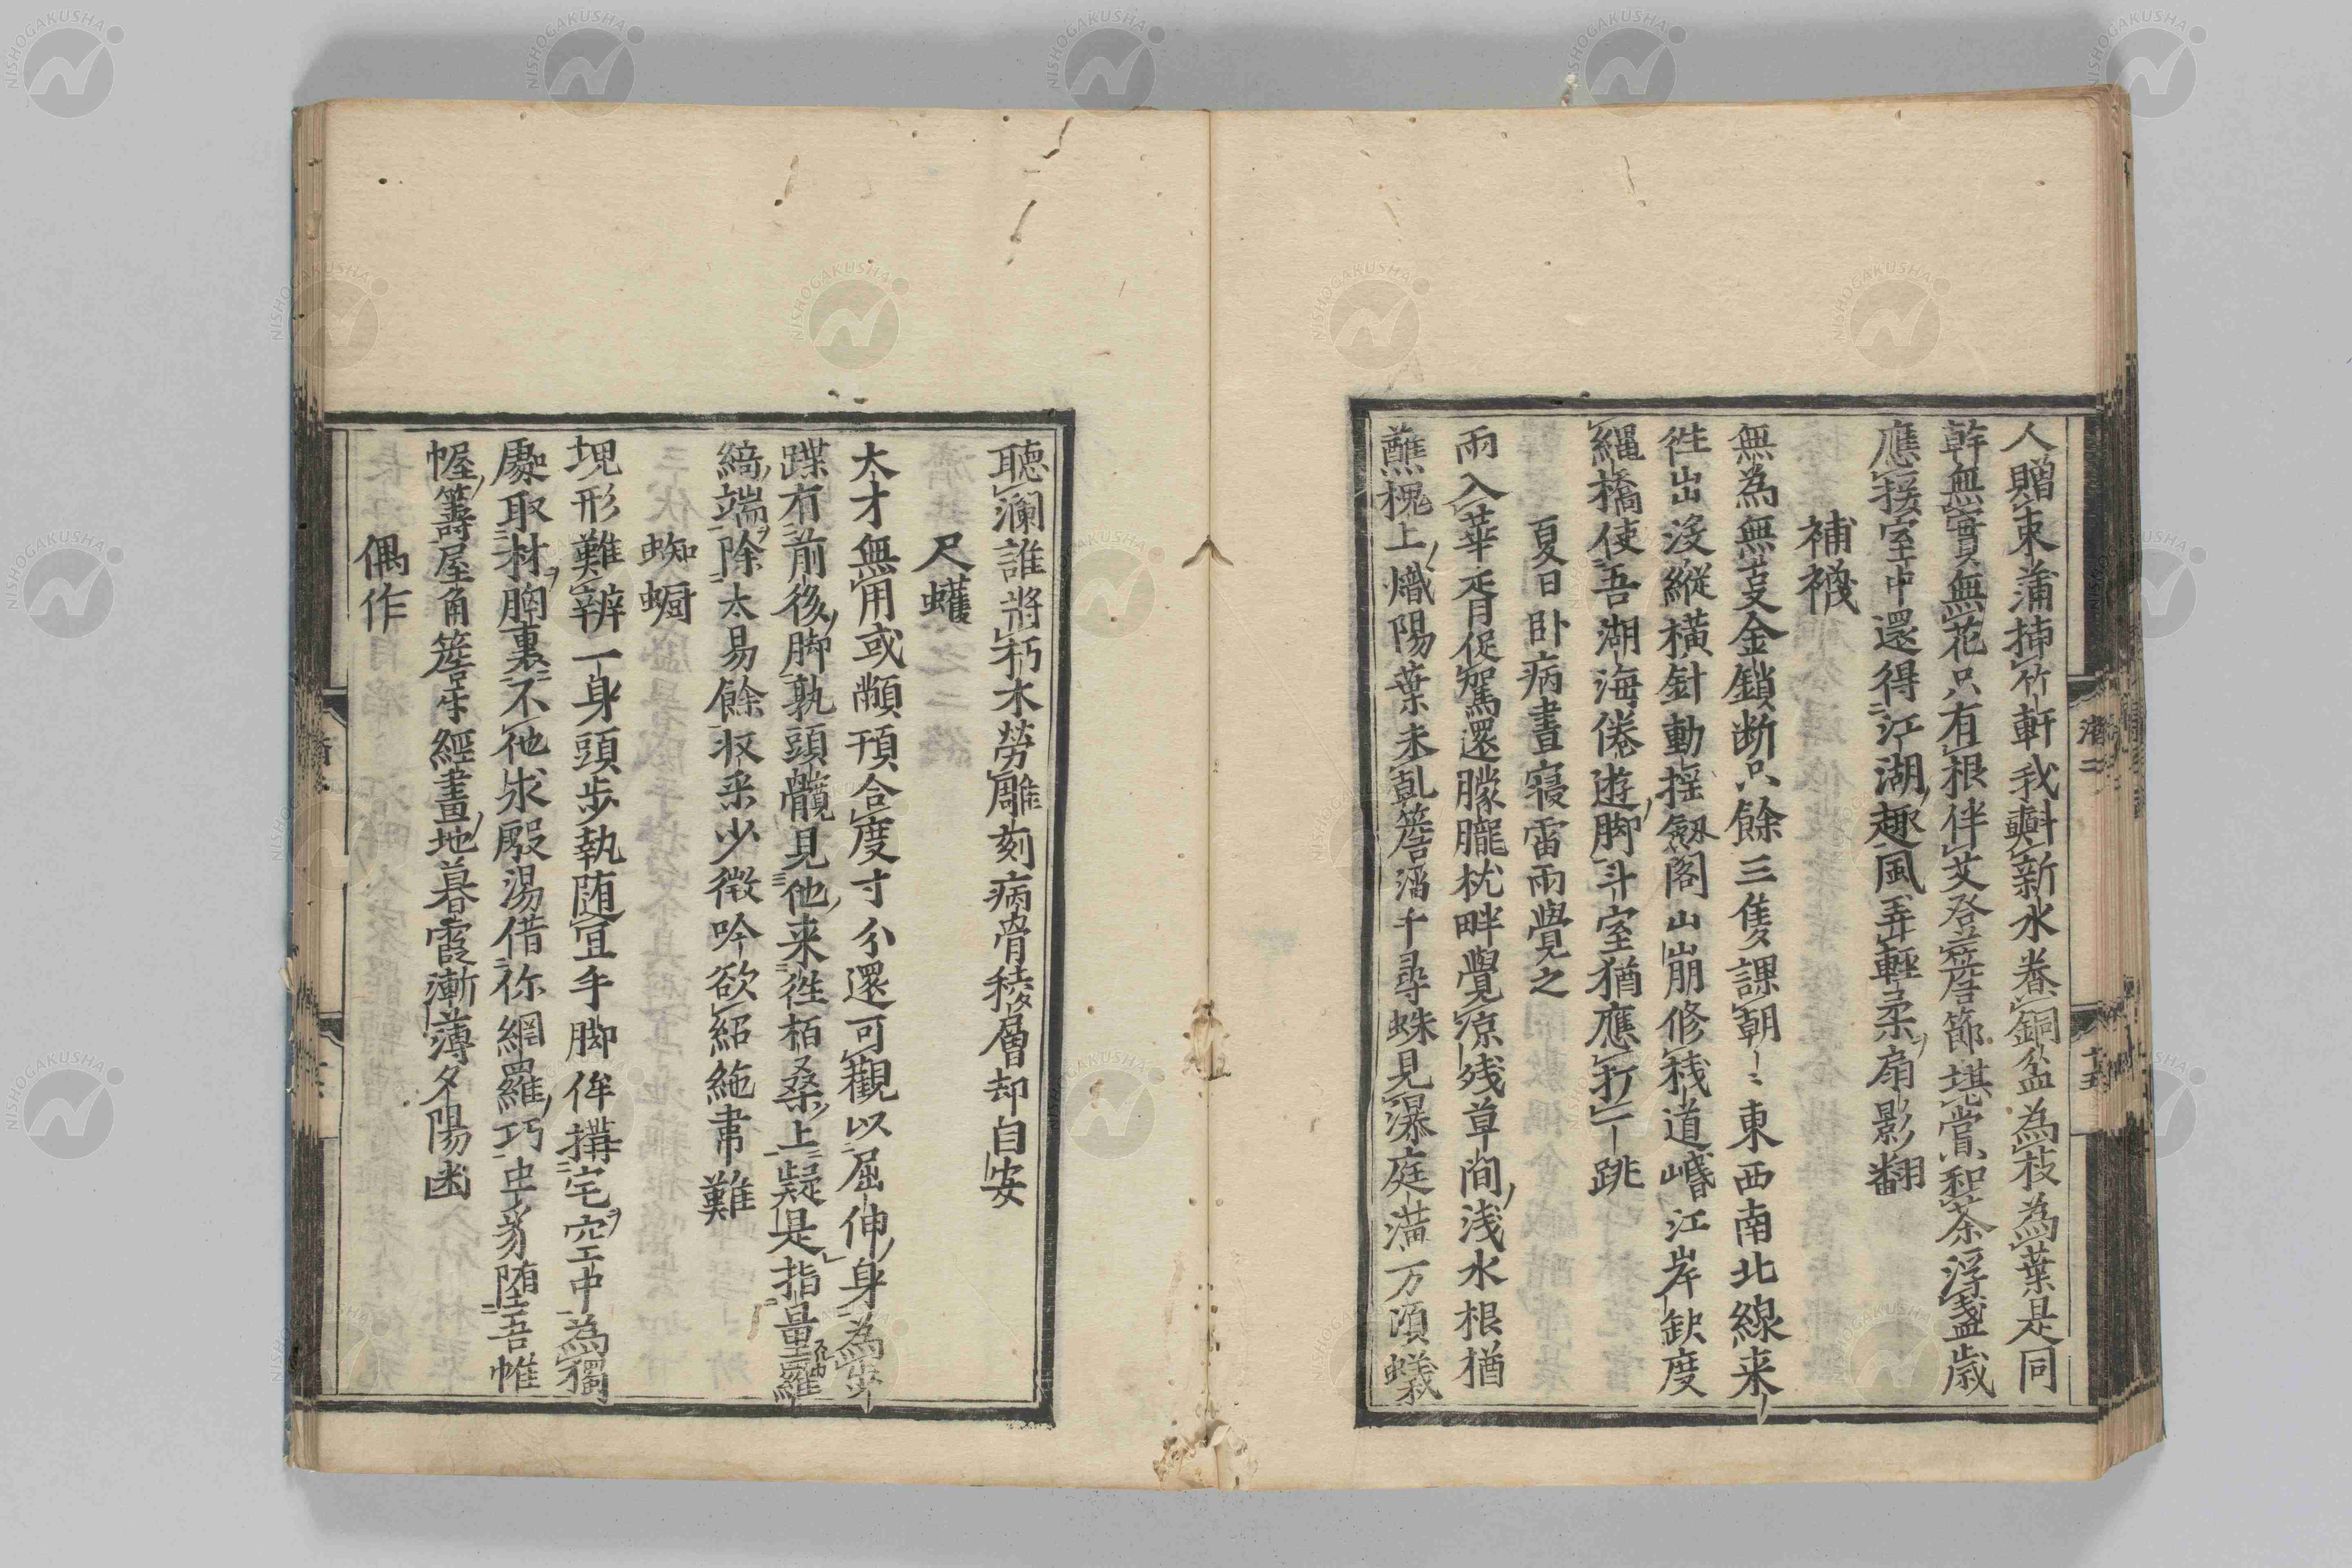 人贈束蒲挿竹軒我斟新水養銅盆為枝為葉是同
幹無實無花只有根伴艾登簷節堪賞和茶浮盞歳
應援室中還得江湖趣風弄輕柔扇影翻
補襪
無為無蔓金鎖断只餘三隻課朝〻東西南北線来
徃出没縦横針動揺劔閣山崩修桟道岷江岸缺度
縄橋使吾湖海倦遊脚斗室猶應打一跳
夏日卧病晝寝雷雨覺之
雨入華胥促駕還朦朧枕畔覺涼残草間浅水根猶
蘸槐上熾陽葉未乹簷溜千尋蛛見瀑庭潢万頃蟻
聽瀾誰將朽木勞雕刻病骨稜層却自安
尺蠖
太才無用或顢頇合度寸分還可觀以屈伸身為
蹀有前後脚孰頭髖見他来徃栢桑上疑是指量羅
綺端除太易餘収采少微吟欲紹絁帋難
蜘蟵
塊形難辨一身頭歩執随冝手脚侔搆宅空中為獨
處取材胸裏不他求殷湯借你網羅巧
漢
幄籌屋角簷牙經畫地暮霞漸薄夕陽凼
偶作
濟二
十五
NISHOGAKUSHA